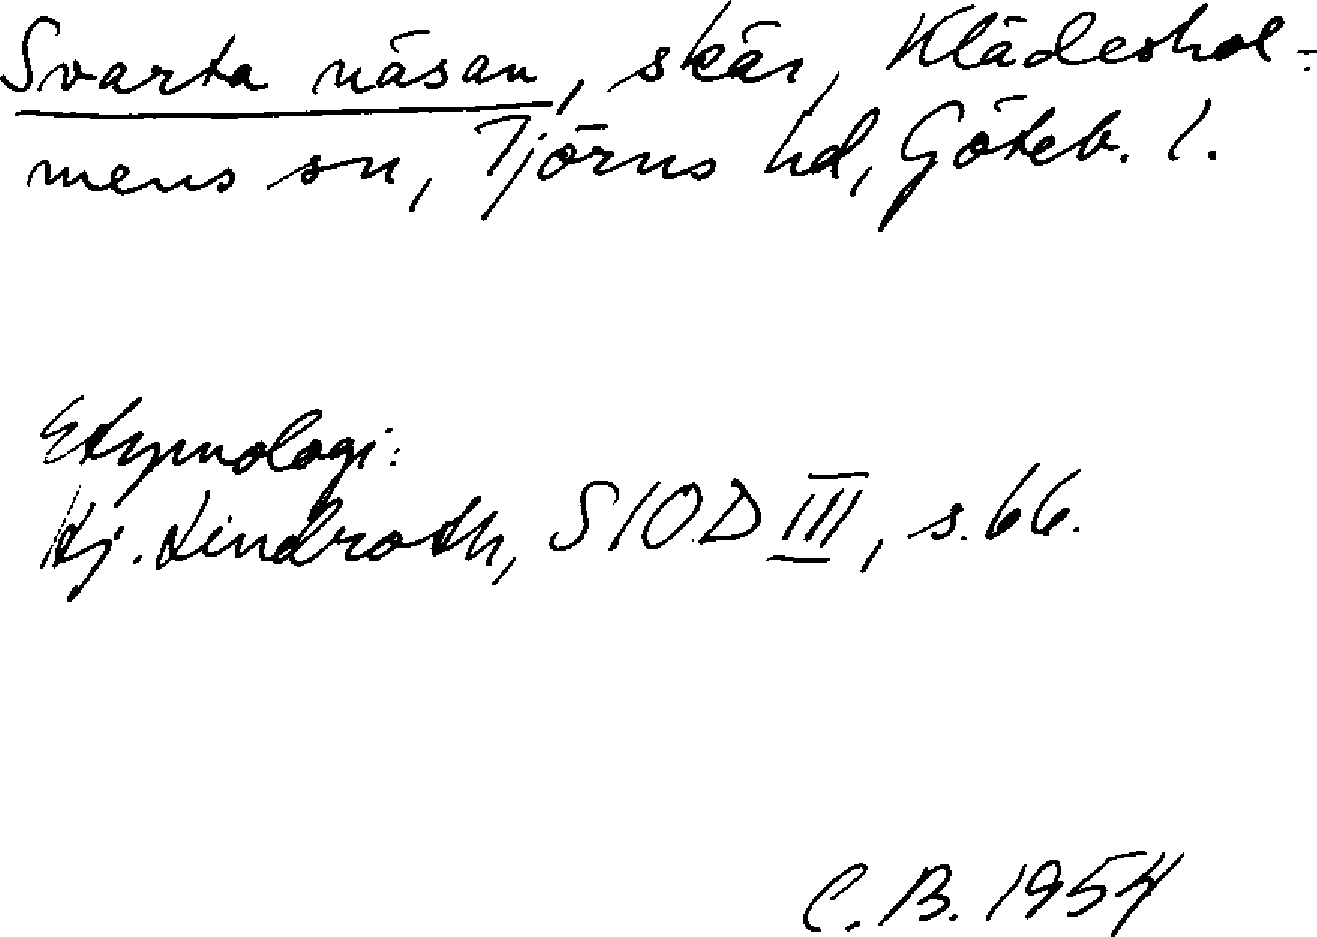 Svarta näsan, skär, Klädeshol-
mens sn, Tjörns hd, Göteb. l.
Etymologi:
Hj. Lindroth, SIOD III, s. 66.
C. B. 1954